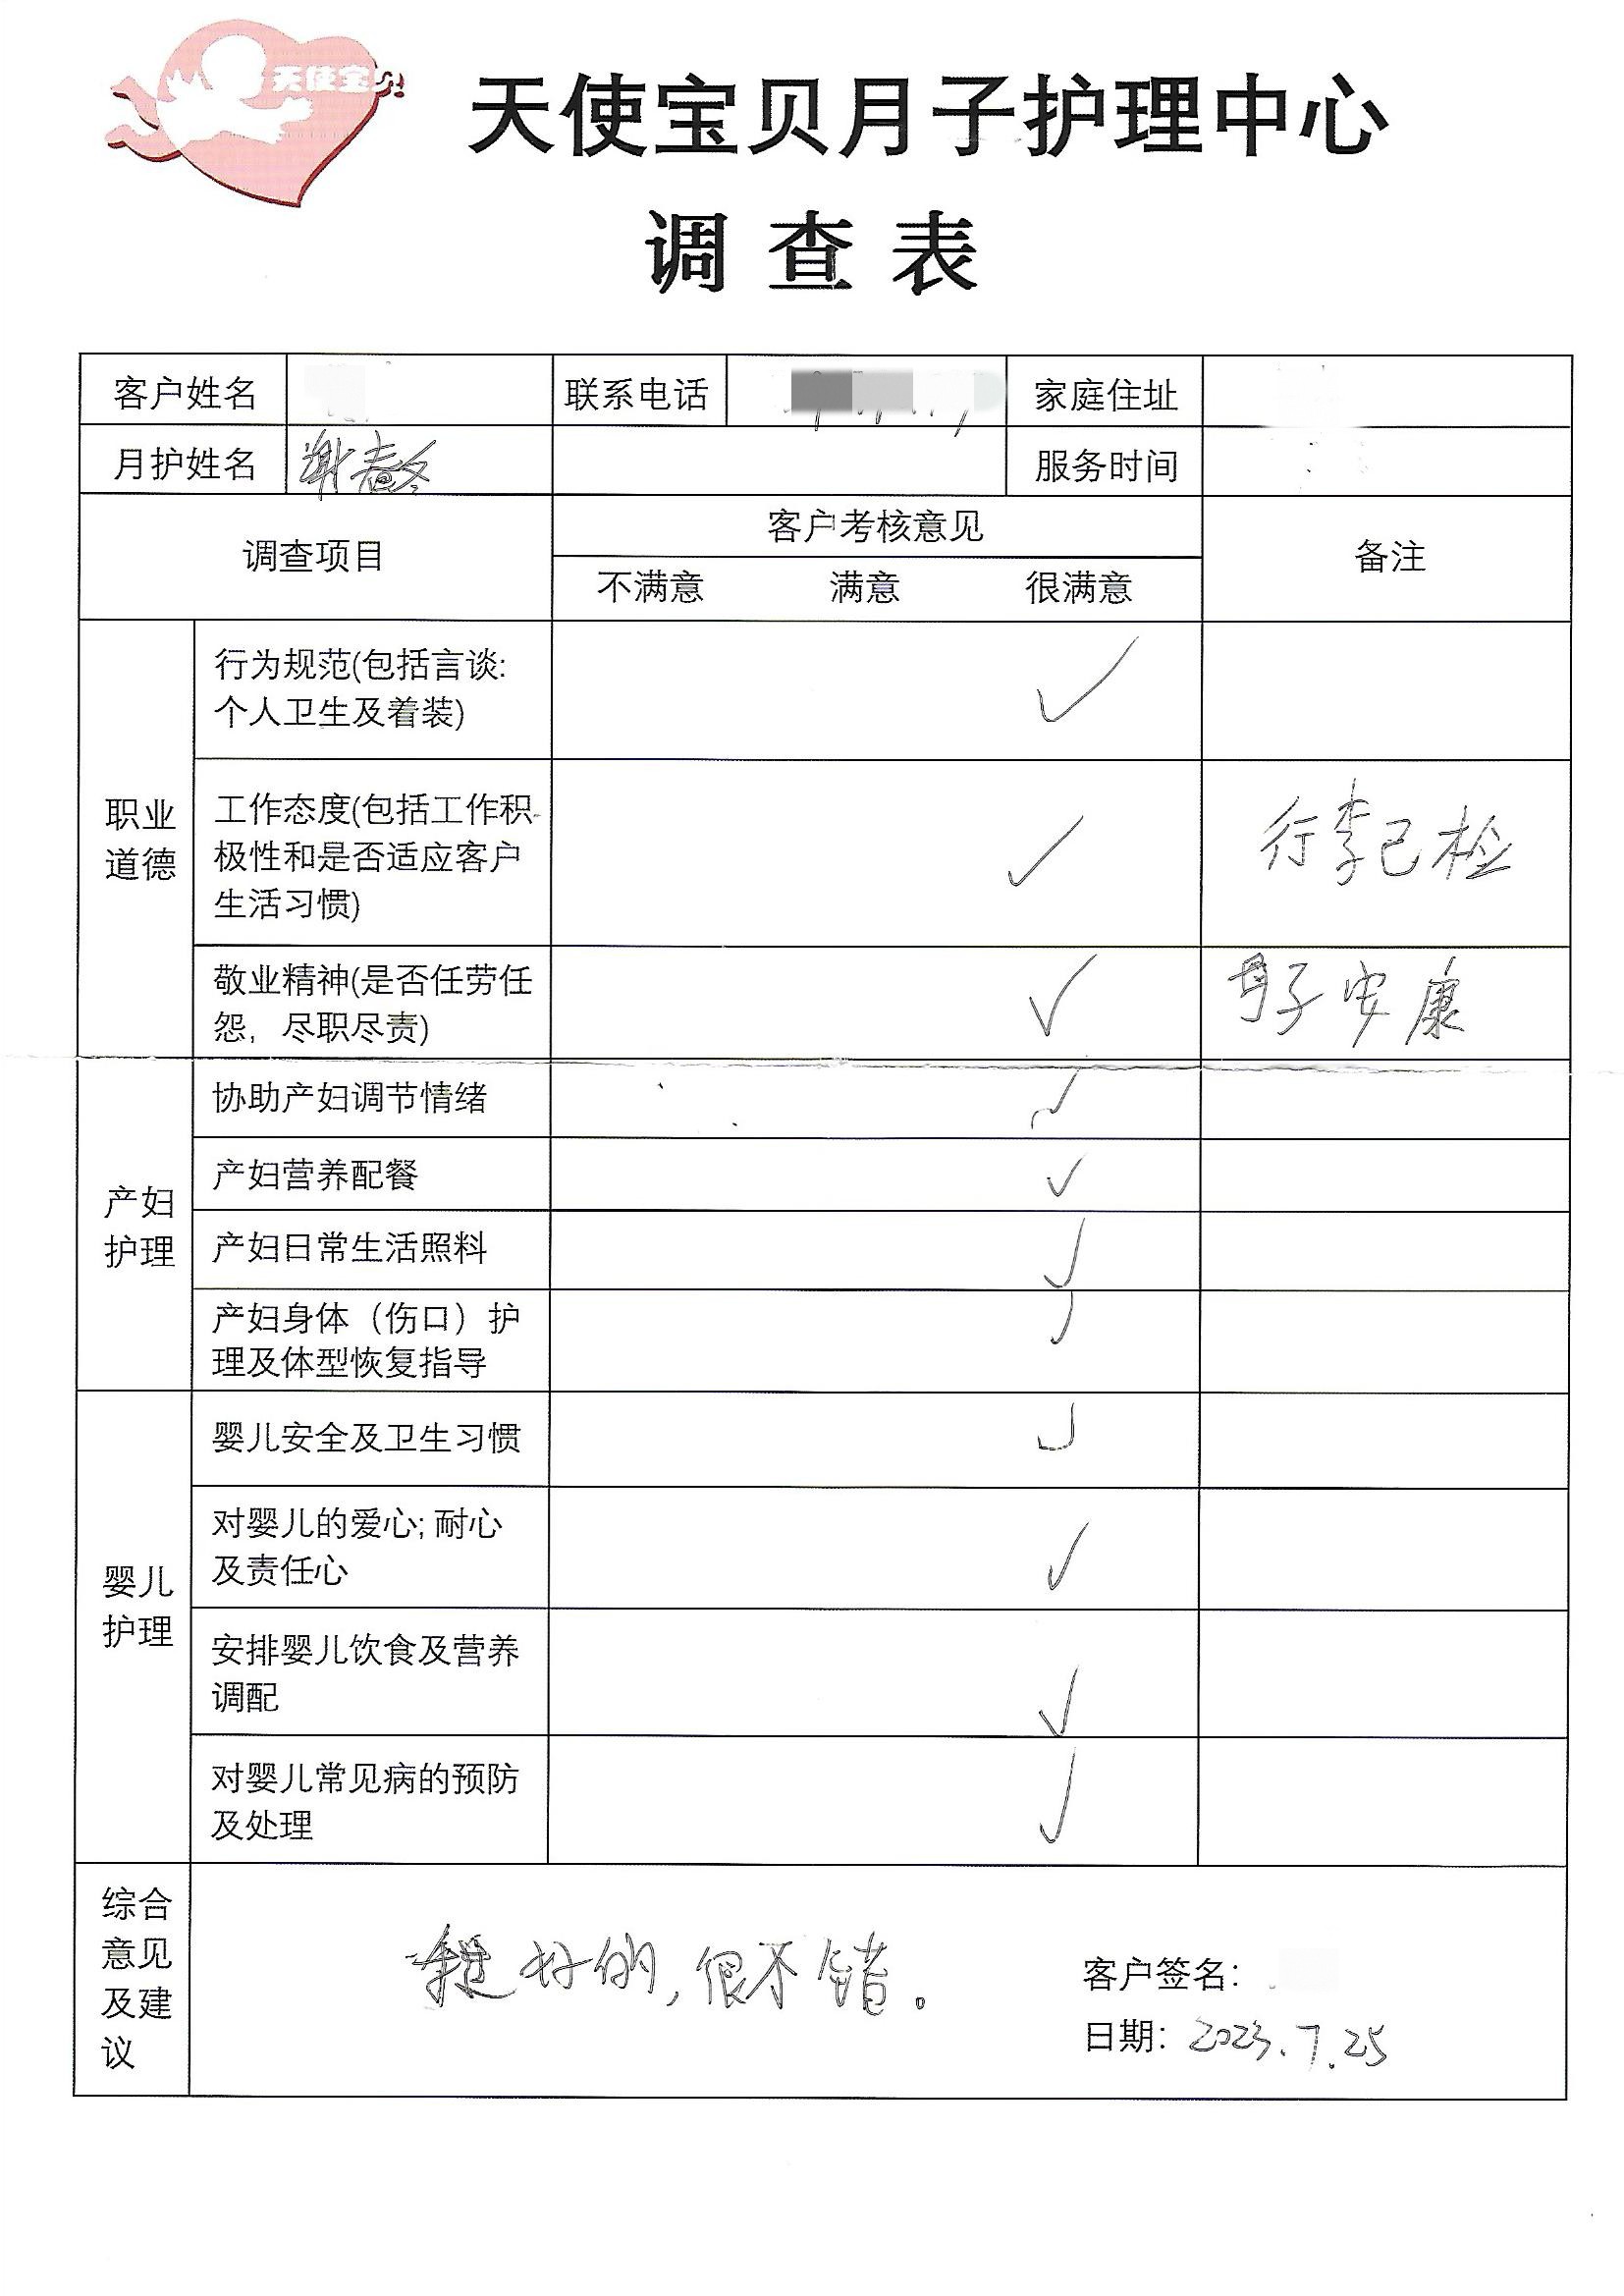 天使宝贝
天使宝贝月子护理中心
调查表
客户姓名 联系电话 家庭住址
月护姓名 谢春冬 服务时间
调查项目 客户考核意见 备注
不满意 满意 很满意
职业
道德
行为规范(包括言谈:
个人卫生及着装) ✓
工作态度(包括工作积
极性和是否适应客户
生活习惯) ✓ 行李已检
敬业精神(是否任劳任
怨，尽职尽责) ✓ 母子安康
产妇
护理
协助产妇调节情绪 ✓
产妇营养配餐 ✓
产妇日常生活照料 ✓
产妇身体（伤口）护
理及体型恢复指导 ✓
婴儿
护理
婴儿安全及卫生习惯 ✓
对婴儿的爱心; 耐心
及责任心 ✓
安排婴儿饮食及营养
调配 ✓
对婴儿常见病的预防
及处理 ✓
综合
意见
及建
议
挺好的,很不错。
客户签名:
日期: 2023.7.25